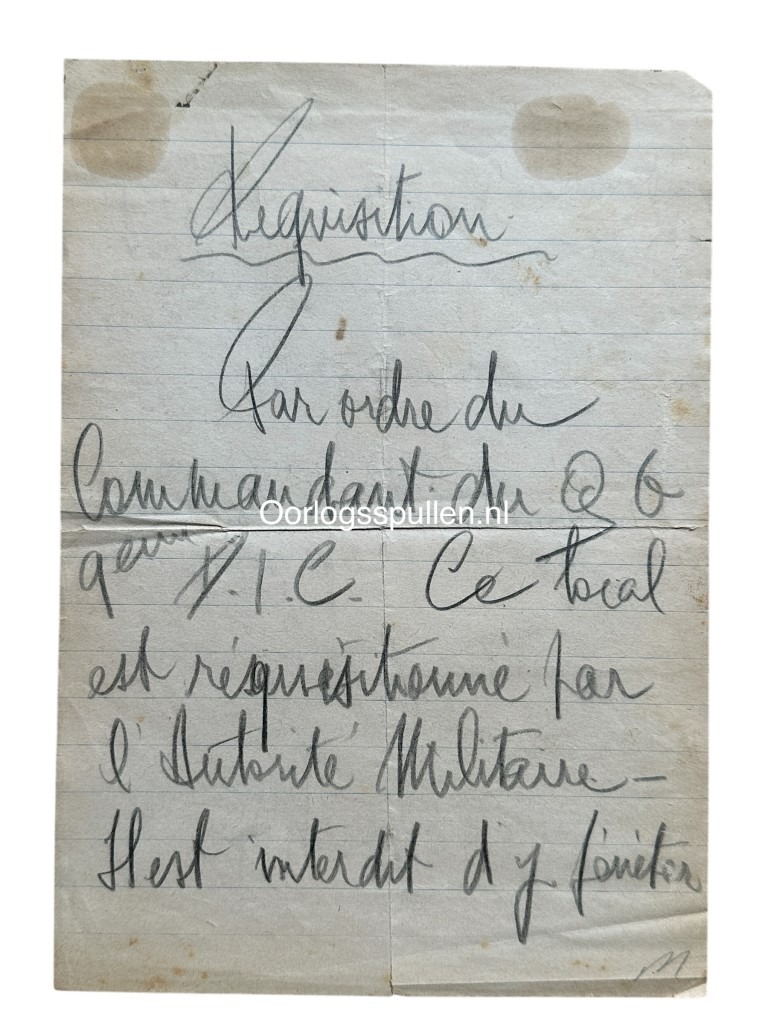 Requisition
Par ordre du
Commandant du Q G
Oorlogsspullen.nl
9eme D.I.C. Ce local
est réquisitionné par
l'Autorité Militaire –
Il est interdit d'y pénétrer